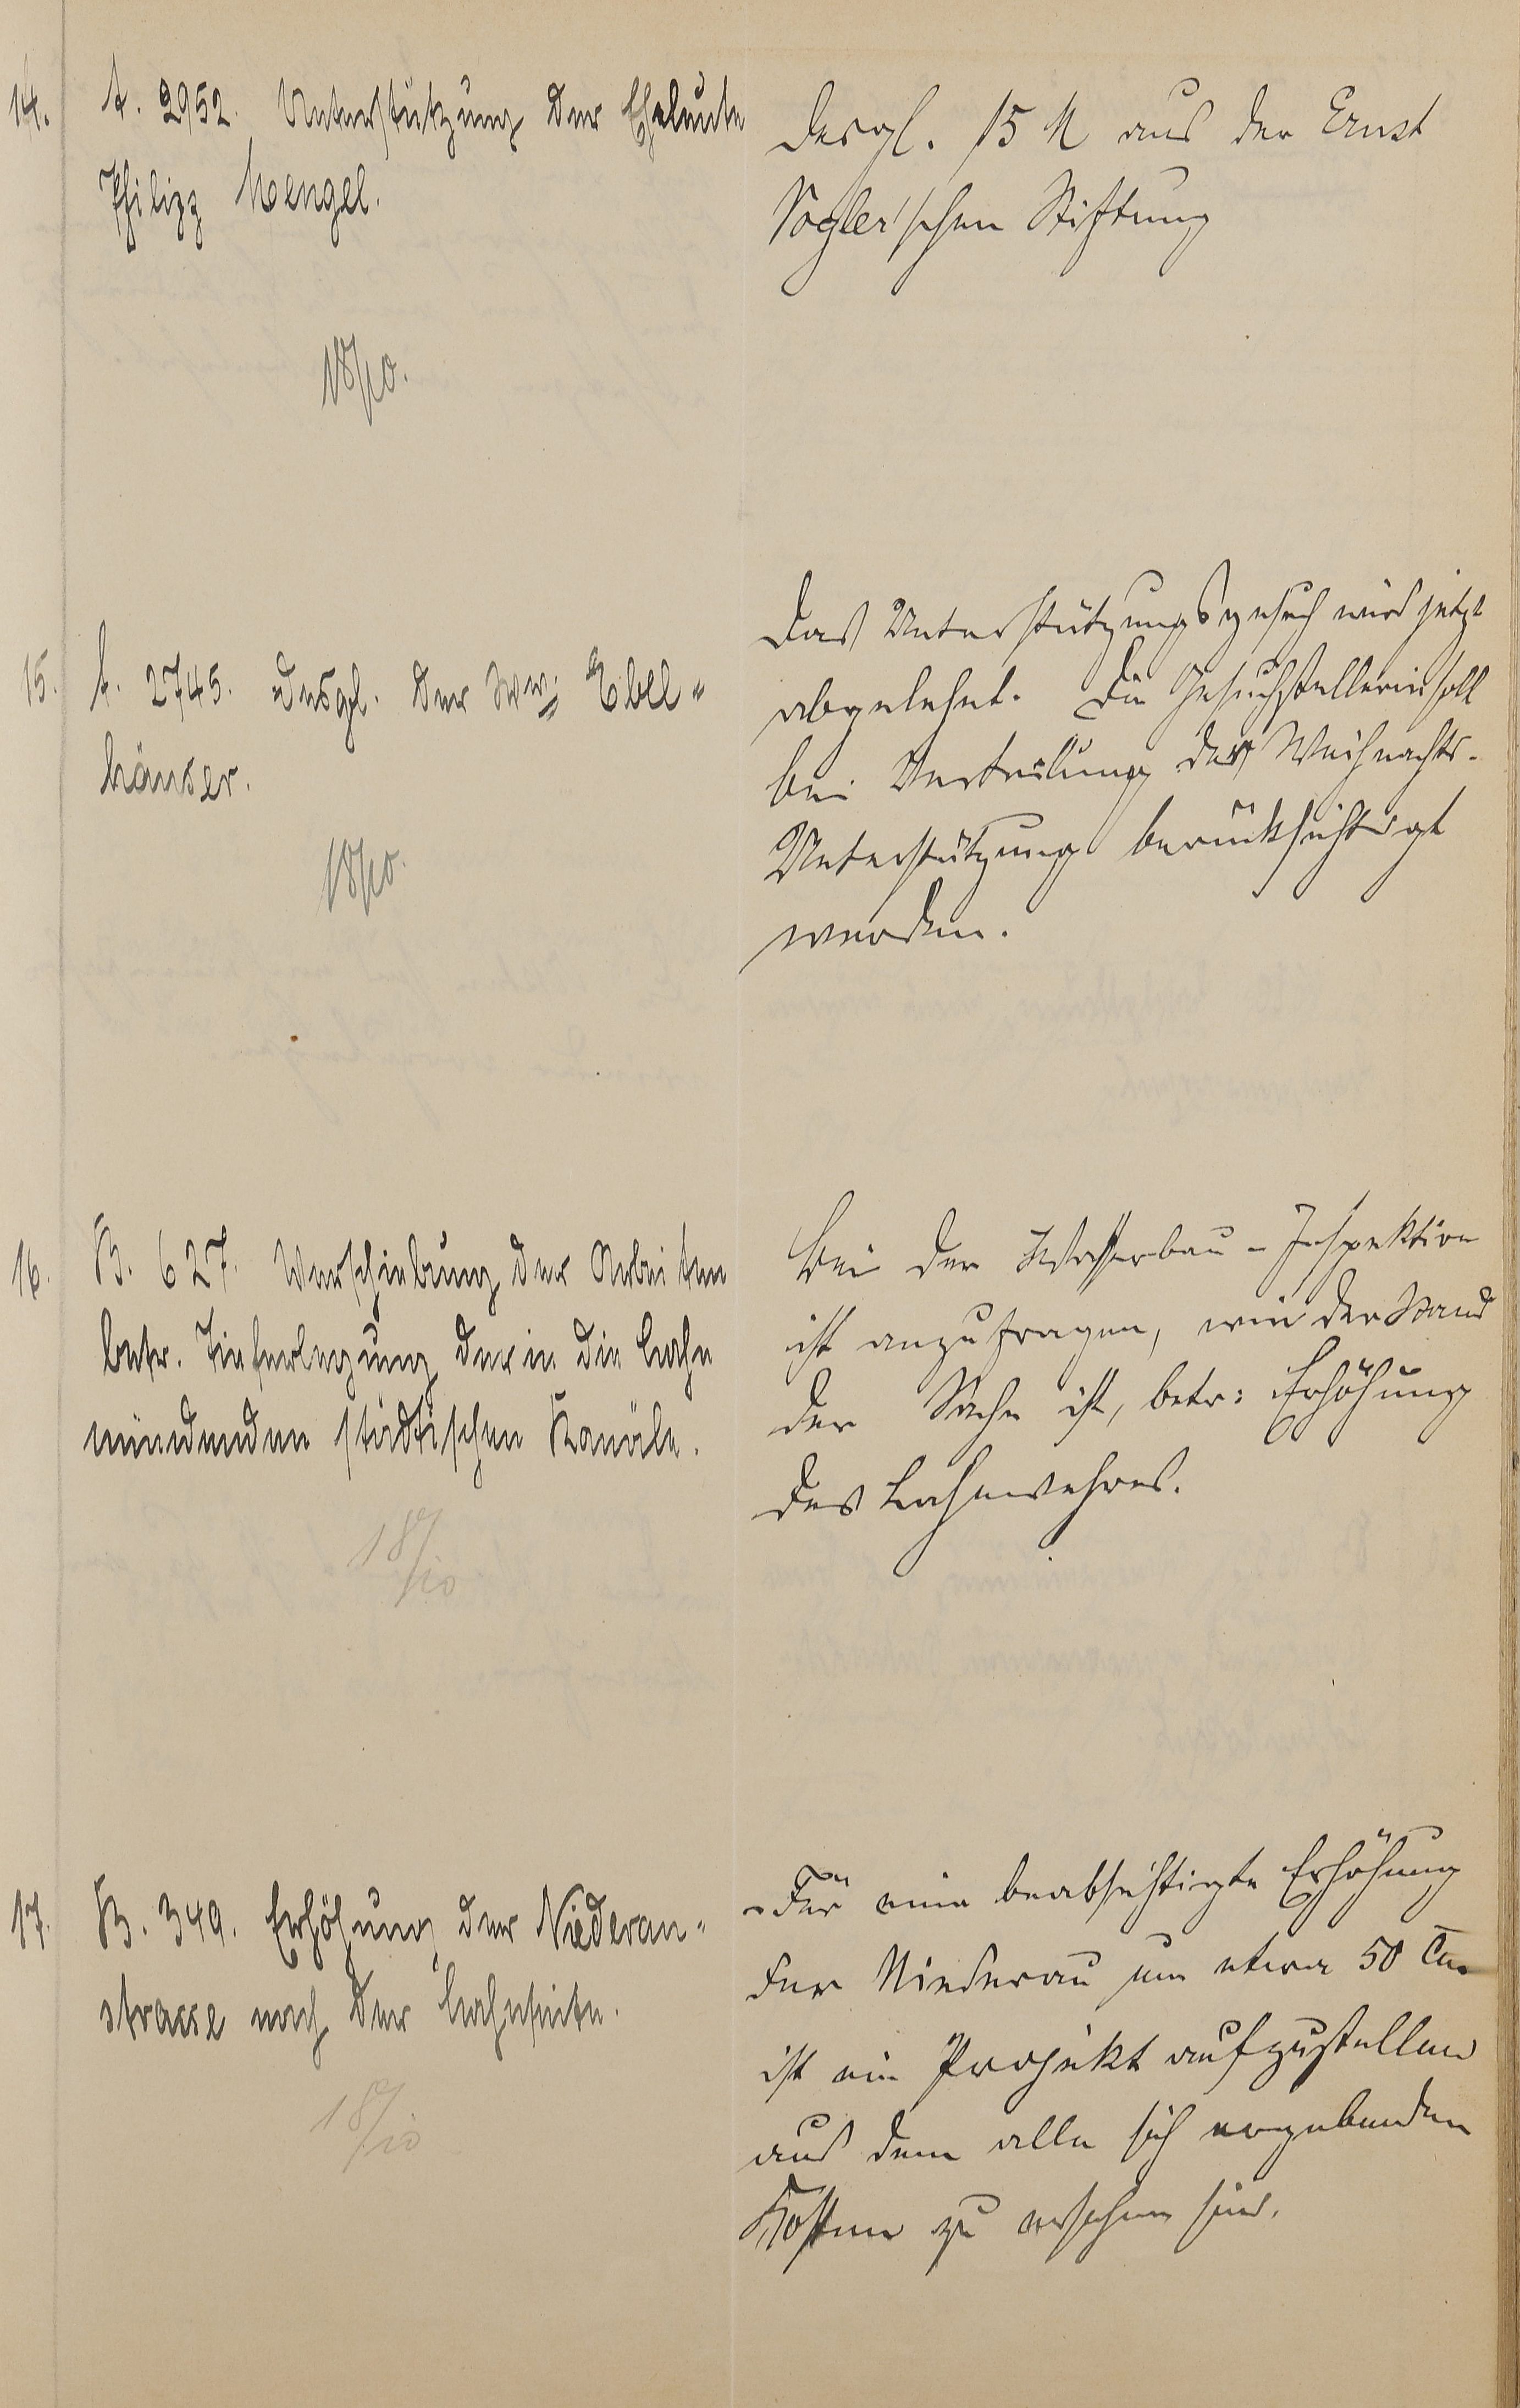 14.
A. 2952. Unterstützung der Eheleute
Philipp Mengel.
18/10.
Desgl. 15 M aus der Ernst
Vogler'schen Stiftung
15.
A. 2745. Desgl. der Ww: Ebel-
häuser.
18/10.
Das Unterstützungsgesuch wird jetzt
abgelehnt. Die Gesuchstellerin soll
bei Verteilung der Weihnachts-
Unterstützung berücksichtigt
werden.
16.
B. 627. Verschiebung der Arbeiten
betr. Tieferlegung der in die Lahn
mündenden städtischen Kanäle.
18/10
Bei der Wasserbau-Inspektion
ist anzufragen, wie der Stand
der Sache ist, betr: Erhöhung
des Lahnwehres.
17.
B. 349. Erhöhung der Niederau-
strasse nach der Lahnseite.
18/10
Für eine beabsichtigte Erhöhung
der Niederau um etwa 50 Cm
ist ein Projekt aufzustellen
aus dem alle sich ergebenden
Kosten zu ersehen sind.